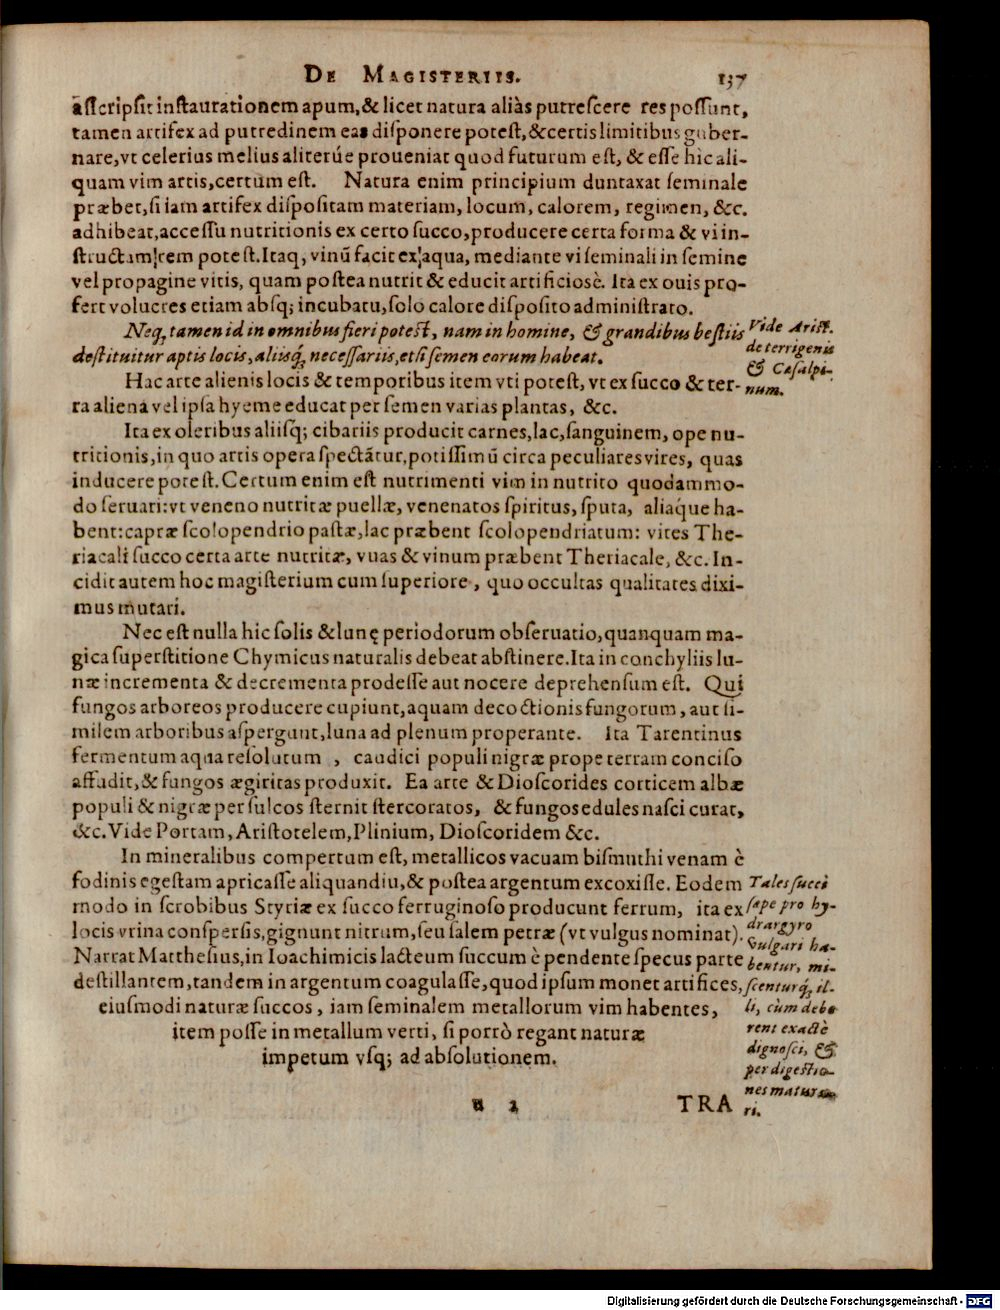 DE MAGISTERIIS. 137
aſſcripſit inſtaurationem apum, & licet natura aliàs putreſcere res poſſunt,
tamen artifex ad putredinem eas diſponere poteſt, & certis limitibus guber-
nare, vt celerius melius aliterúe proueniat quod futurum eſt, & eſſe hic ali-
quam vim artis, certum eſt. Natura enim principium duntaxat ſeminale
præbet, ſi iam artifex diſpoſitam materiam, locum, calorem, regimen, &c.
adhibeat, acceſſu nutritionis ex certo ſucco, producere certa forma & vi in-
ſtructam rem poteſt. Itaq; vinũ facit ex aqua, mediante vi ſeminali in ſemine
vel propagine vitis, quam poſtea nutrit & educit artificiosè. Ita ex ouis pro-
fert volucres etiam abſq; incubatu, ſolo calore diſpoſito adminiſtrato.
Neq, tamen id in omnibus fieri poteſt, nam in homine, & grandibus beſtiis
deſtituitur aptis locis, aliiſq́, neceſſariis, etſi ſemen eorum habeat.
Hac arte alienis locis & temporibus item vti poteſt, vt ex ſucco & ter-
ra aliena vel ipſa hyeme educat per ſemen varias plantas, &c.
Vide Ariſt.
de terrigenis
& Cæſalpi-
num.
Ita ex oleribus aliiſq́; cibariis producit carnes, lac, ſanguinem, ope nu-
tritionis, in quo artis opera ſpectãtur, potiſſimũ circa peculiares vires, quas
inducere poteſt. Certum enim eſt nutrimenti vim in nutrito quodammo-
do ſeruari: vt veneno nutritæ puellæ, venenatos ſpiritus, ſputa, aliáque ha-
bent: capræ ſcolopendrio paſtæ, lac præbent ſcolopendriatum: vites The-
riacali ſucco certa arte nutritæ, vuas & vinum præbent Theriacale, &c. In-
cidit autem hoc magiſterium cum ſuperiore, quo occultas qualitates dixi-
mus mutari.
Nec eſt nulla hic ſolis & lunę periodorum obſeruatio, quanquam ma-
gica ſuperſtitione Chymicus naturalis debeat abſtinere. Ita in conchyliis lu-
næ incrementa & decrementa prodeſſe aut nocere deprehenſum eſt. Qui
fungos arboreos producere cupiunt, aquam decoctionis fungorum, aut ſi-
milem arboribus aſpergunt, luna ad plenum properante. Ita Tarentinus
fermentum aqua reſolutum, caudici populi nigræ prope terram conciſo
affudit, & fungos ægiritas produxit. Ea arte & Dioſcorides corticem albæ
populi & nigræ per ſulcos ſternit ſtercoratos, & fungos edules naſci curat,
&c. Vide Portam, Ariſtotelem, Plinium, Dioſcoridem &c.
In mineralibus compertum eſt, metallicos vacuam biſmuthi venam è
fodinis egeſtam apricaſſe aliquandiu, & poſtea argentum excoxiſſe. Eodem
modo in ſcrobibus Styriæ ex ſucco ferruginoſo producunt ferrum, ita ex
locis vrina conſperſis, gignunt nitrum, ſeu ſalem petræ (vt vulgus nominat).
Narrat Mattheſius, in Ioachimicis lacteum ſuccum è pendente ſpecus parte
deſtillantem, tandem in argentum coagulaſſe, quod ipſum monet artifices,
eiuſmodi naturæ ſuccos, iam ſeminalem metallorum vim habentes,
item poſſe in metallum verti, ſi porrò regant naturæ
impetum vſq; ad abſolutionem.
Tales ſucci
ſæpe pro hy-
drargyro
vulgari ha-
bentur, mi-
ſcenturq́, il-
li, cùm debe-
rent exactè
dignoſci, &
per digeſtio-
nes matura-
ri.
TRA
Digitalisierung gefördert durch die Deutsche Forschungsgemeinschaft - DFG